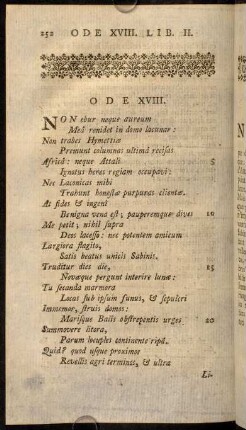 252 ODE XVIII. LIB. II.
ODE XVIII.
NON ebur neque aureum
Mea renidet in domo lacunar:
Non trabes Hymettiæ
Premunt columnas ultimâ recisas
Africâ: neque Attali 5
Ignotus heres regiam occupavi:
Nec Laconicas mihi
Trahunt honestæ purpuras clientæ.
At fides & ingenî
Benigna vena est; pauperemque dives 10
Me petit; nihil supra
Deos lacesso: nec potentem amicum
Largiora flagito,
Satis beatus unicis Sabinis.
Truditur dies die, 15
Novæque pergunt interire lunæ:
Tu secanda marmora
Locas sub ipsum funus, & sepulcri
Immemor, struis domos:
Marisque Baiis obstrepentis urges 20
Summovere litora,
Parum locuples continente ripâ.
Quid? quod usque proximos
Revellis agri terminos, & ultra
Li-